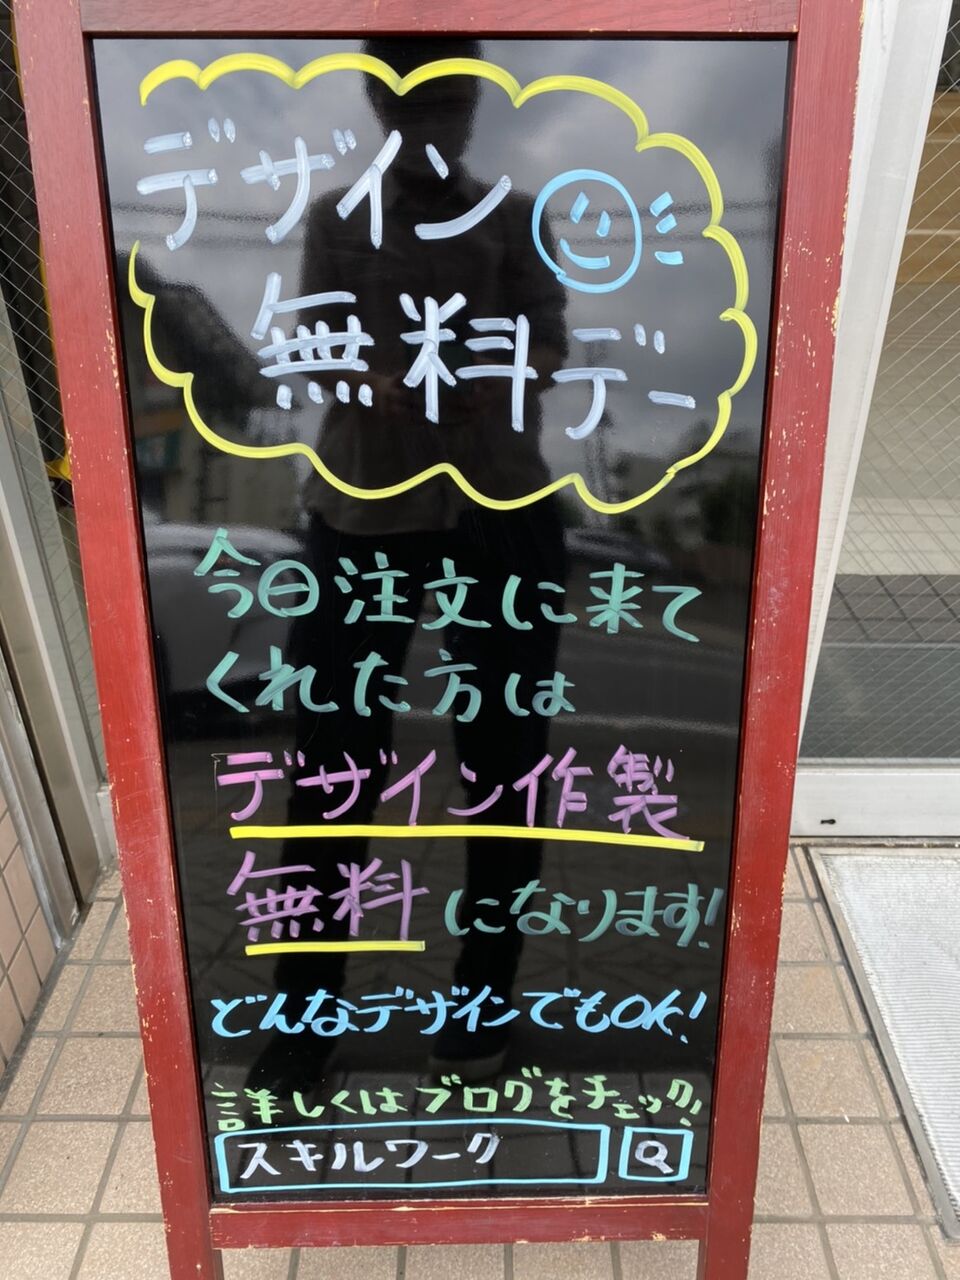 デザイン
無料デー
今日注文に来て
くれた方は
デザイン作製
無料になります!
どんなデザインでもOK!
詳しくはブログをチェック!
スキルワーク